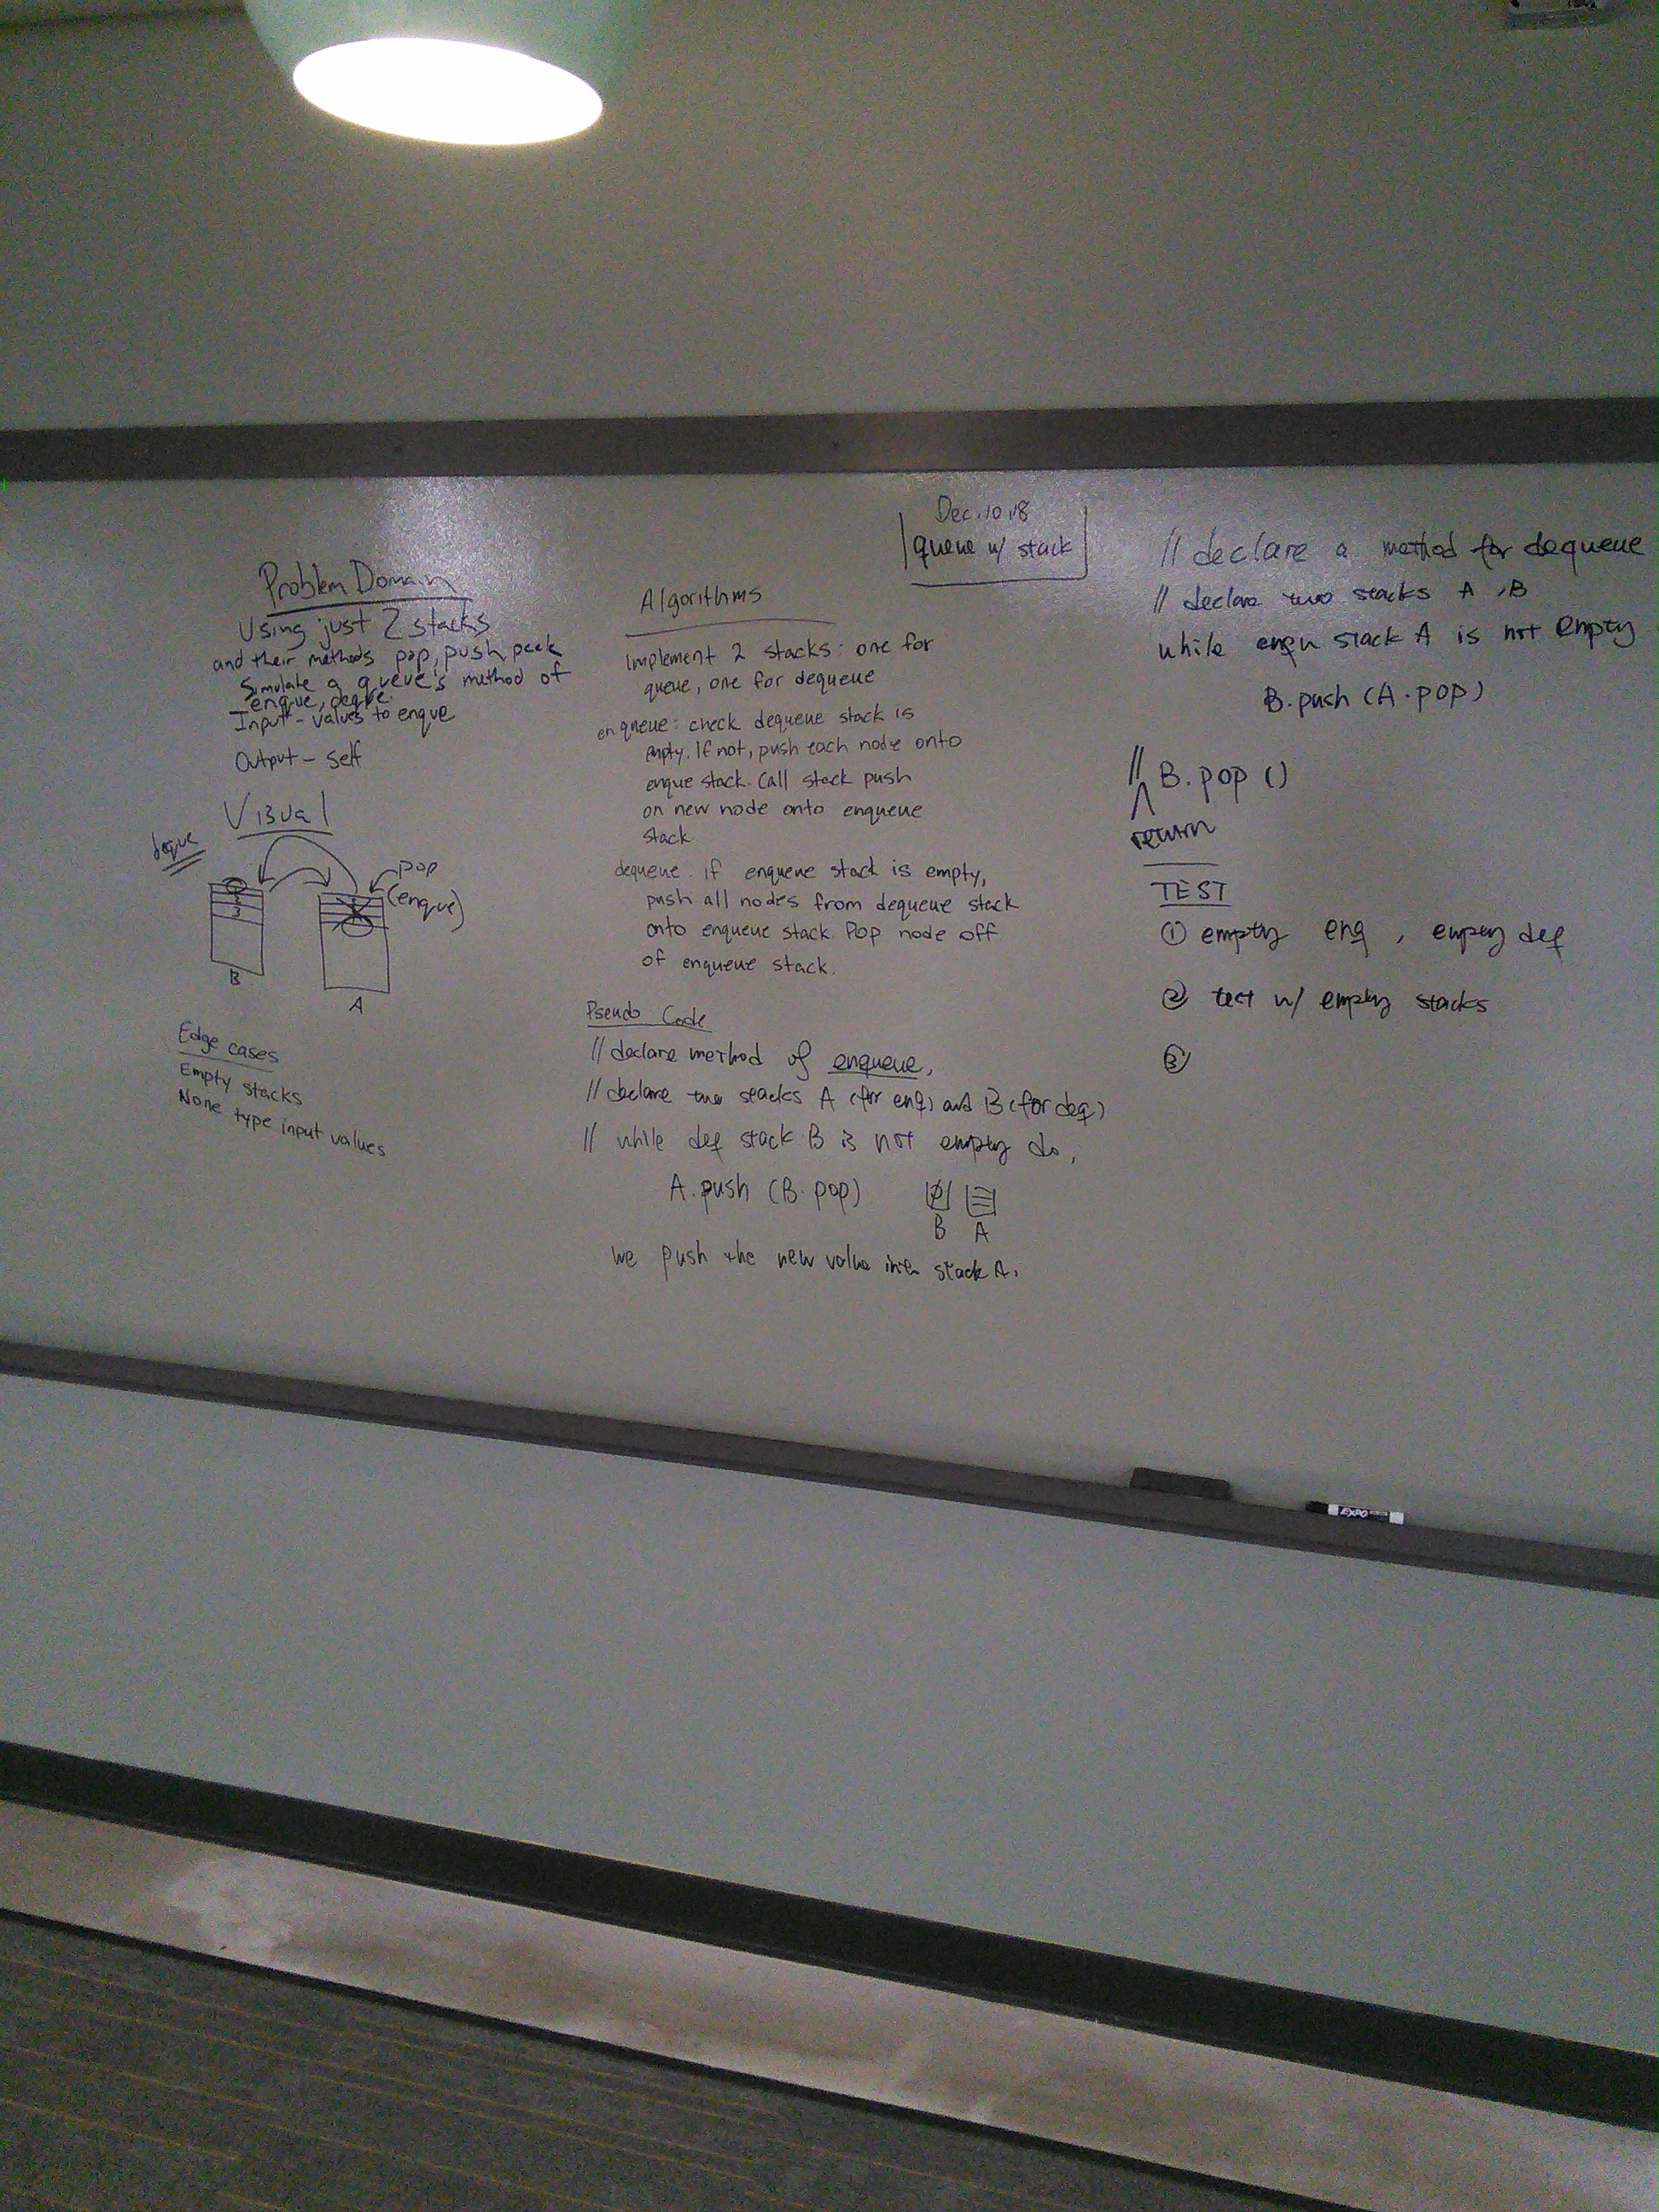 Dec. 10, 18
queue w/ stack
Problem Domain
Using just 2 stacks
and their methods pop, push peek
Simulate a queue's method of
enque, deque.
Input - values to enque
Output - self
Visual
deque
pop
(enque)
B
A
Edge cases
Empty stacks
None type input values
Algorithms
Implement 2 stacks: one for
queue, one for dequeue
enqueue: check dequeue stack is
empty. If not, push each node onto
enque stack. Call stack push
on new node onto enqueue
stack
dequeue. if enqueue stack is empty,
push all nodes from dequeue stack
onto enqueue stack. Pop node off
of enqueue stack.
Pseudo Code
// declare method of enqueue,
// declare two stacks A (for enq) and B (for deq)
// while deq stack B is not empty do,
A.push (B.pop)
B A
we push the new value into stack A.
// declare a method for dequeue
// declare two stacks A, B
while enqu stack A is not empty
B.push (A.pop)
// B.pop ()
return
TEST
① empty enq, empty deq
② test w/ empty stacks
③
EXPO